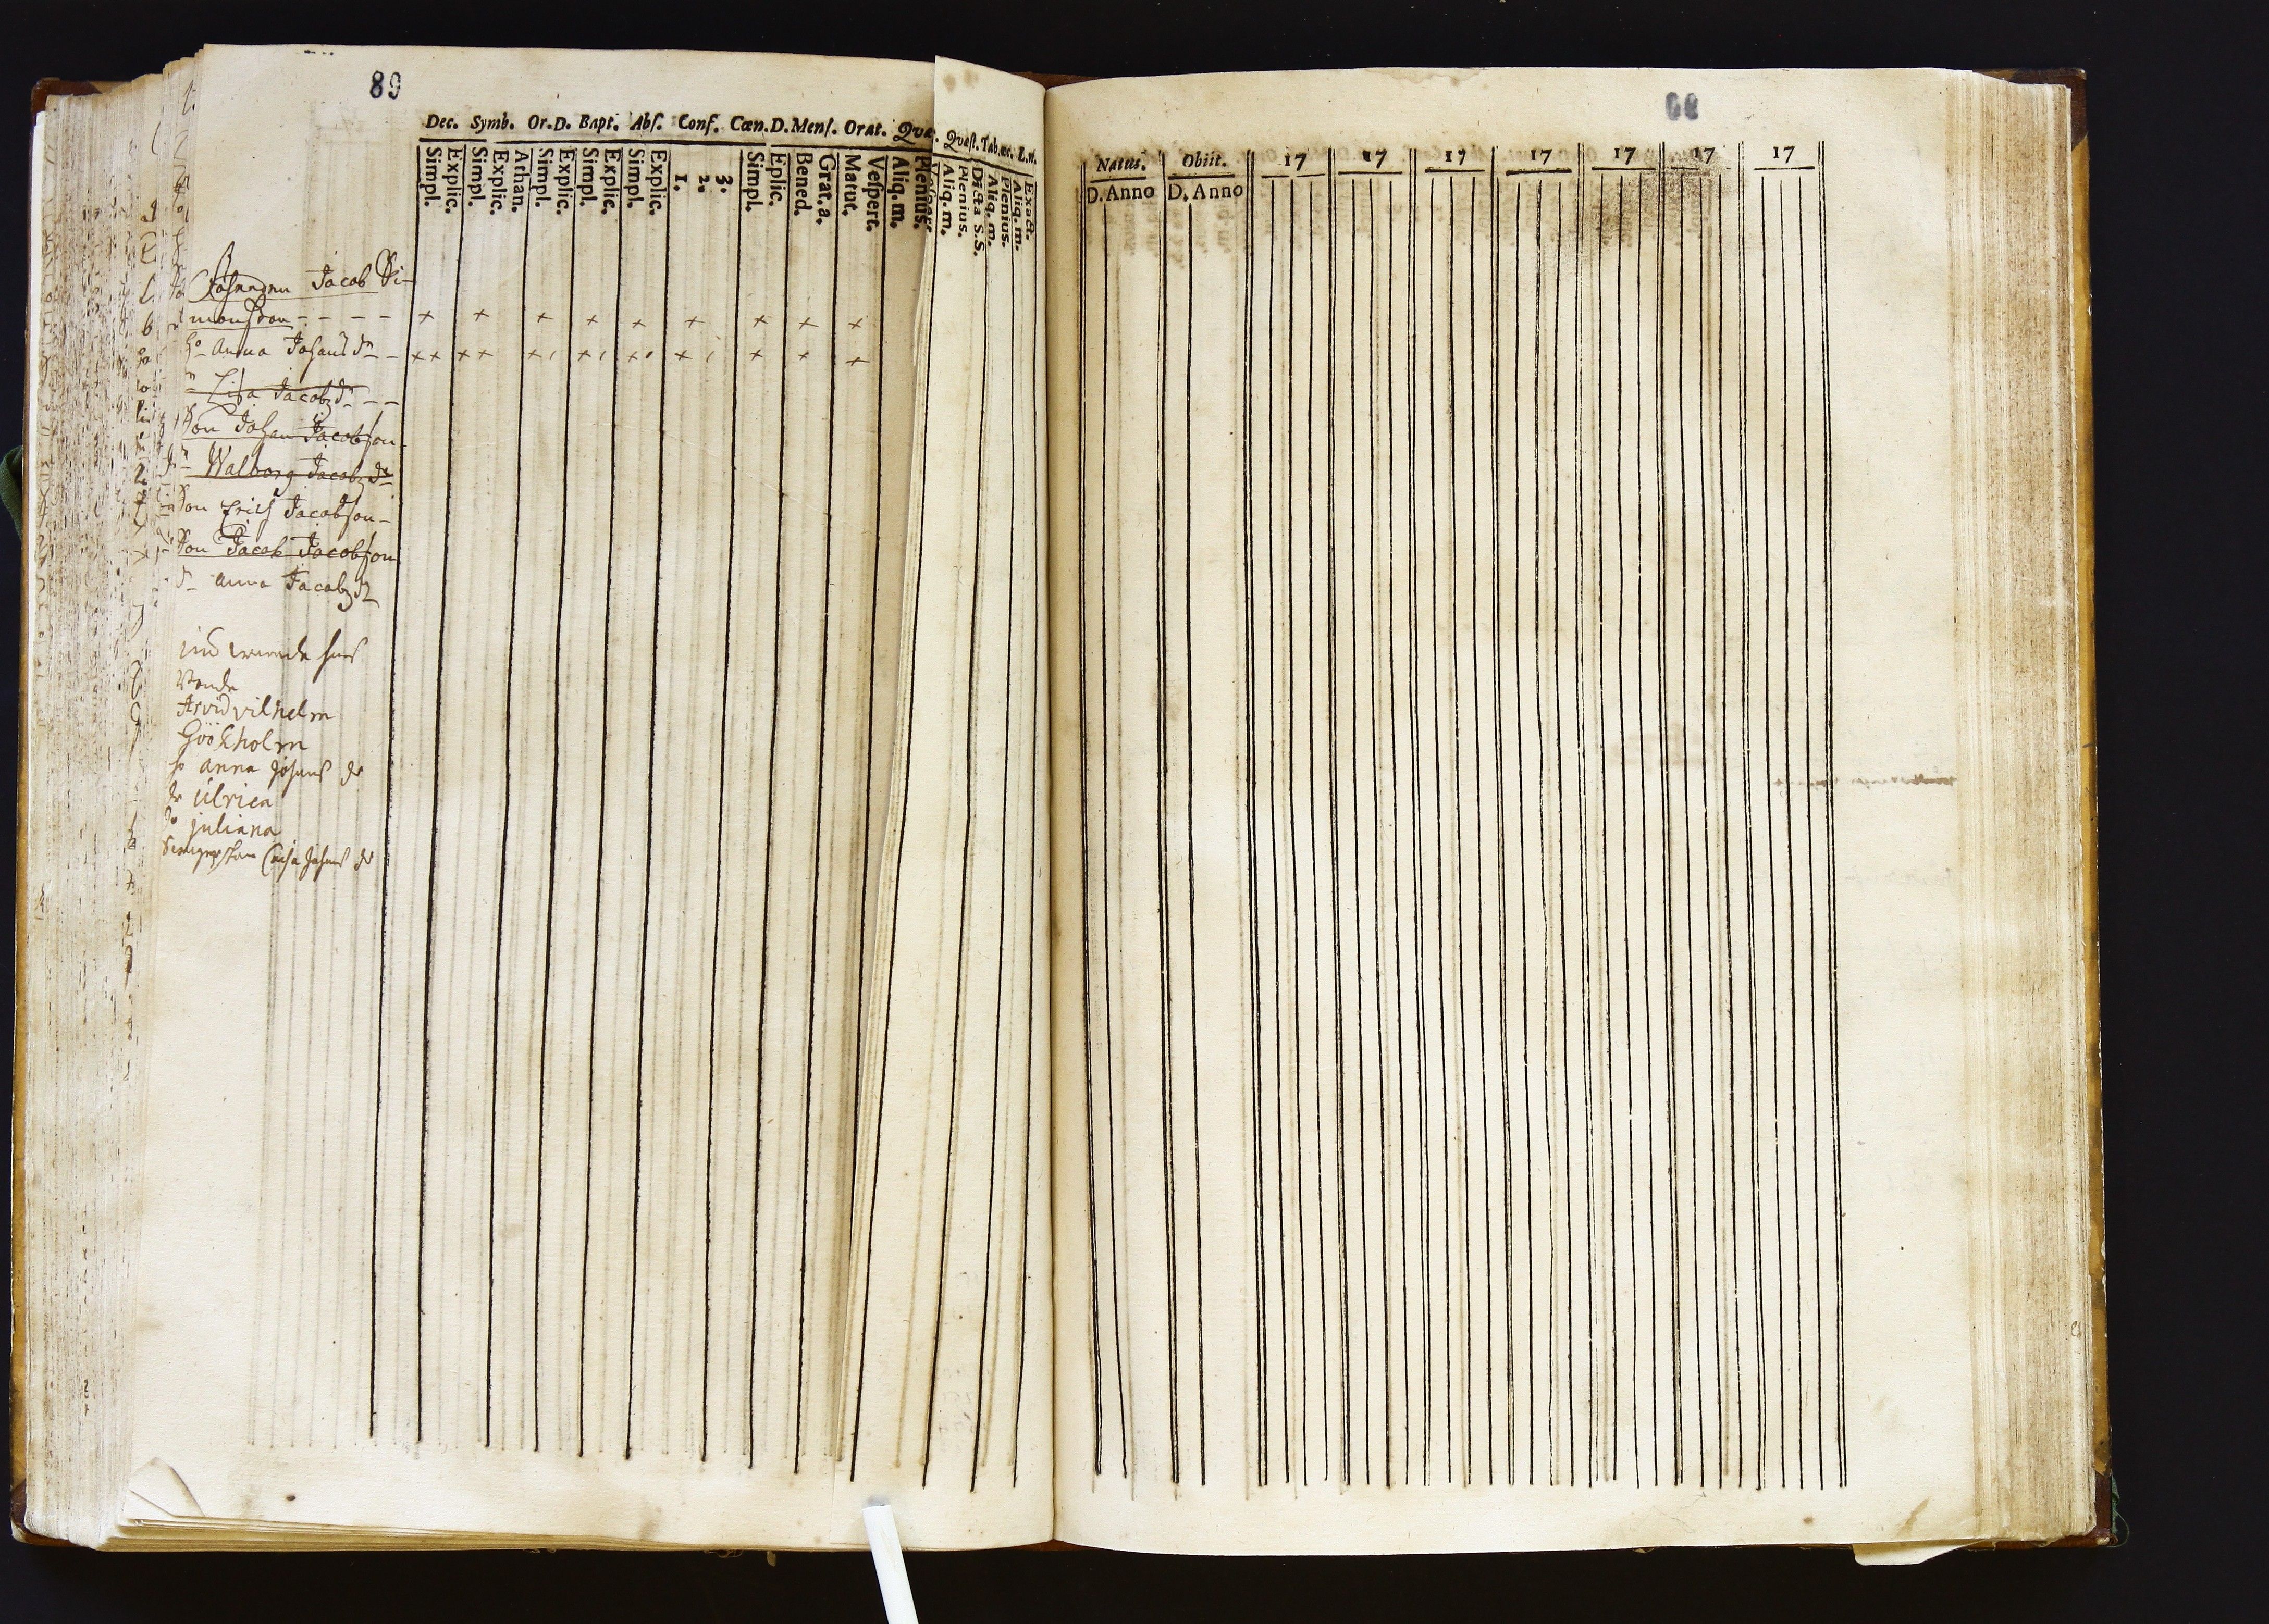 89
Dec. Symb. Or.D. Bapt. Abſ. Conf. Cœn.D. Menſ. Orat. Qvæ
Qvæſt. Tab.œc. L.n.
Simpl. Explic. Simpl. Explic. Athan. Simpl. Explic. Simpl. Explic. Simpl. Explic. 1. 2. 3. Simpl. Eplic. Bened. Grat. a. Matut. Veſpert. Aliq. m. Plenius.
Aliq. m. Plenius. Dicta S.S. Aliq. m. Plenius. Aliq. m. Exact.
Jacob Si-
monſson - - - -
+ + + + + + + + +
h:o Anna Johans dr -
++ ++ +, +, +, +, + + +
Liſa Jacobz dr - -
Son Johan Jacobſon-
Walborg Jacobz dr
Son Erich Jacobſon-
Son Jacob Jacobſon
d- Anna Jacobz dr
Arvid vilhelm
Göökholm
h anna Johans dr
dr Ulrica
dr juliana
Caisa Johans dr
90
Natus. Obiit. 17 17 17 17 17 17 17
D. Anno D. Anno